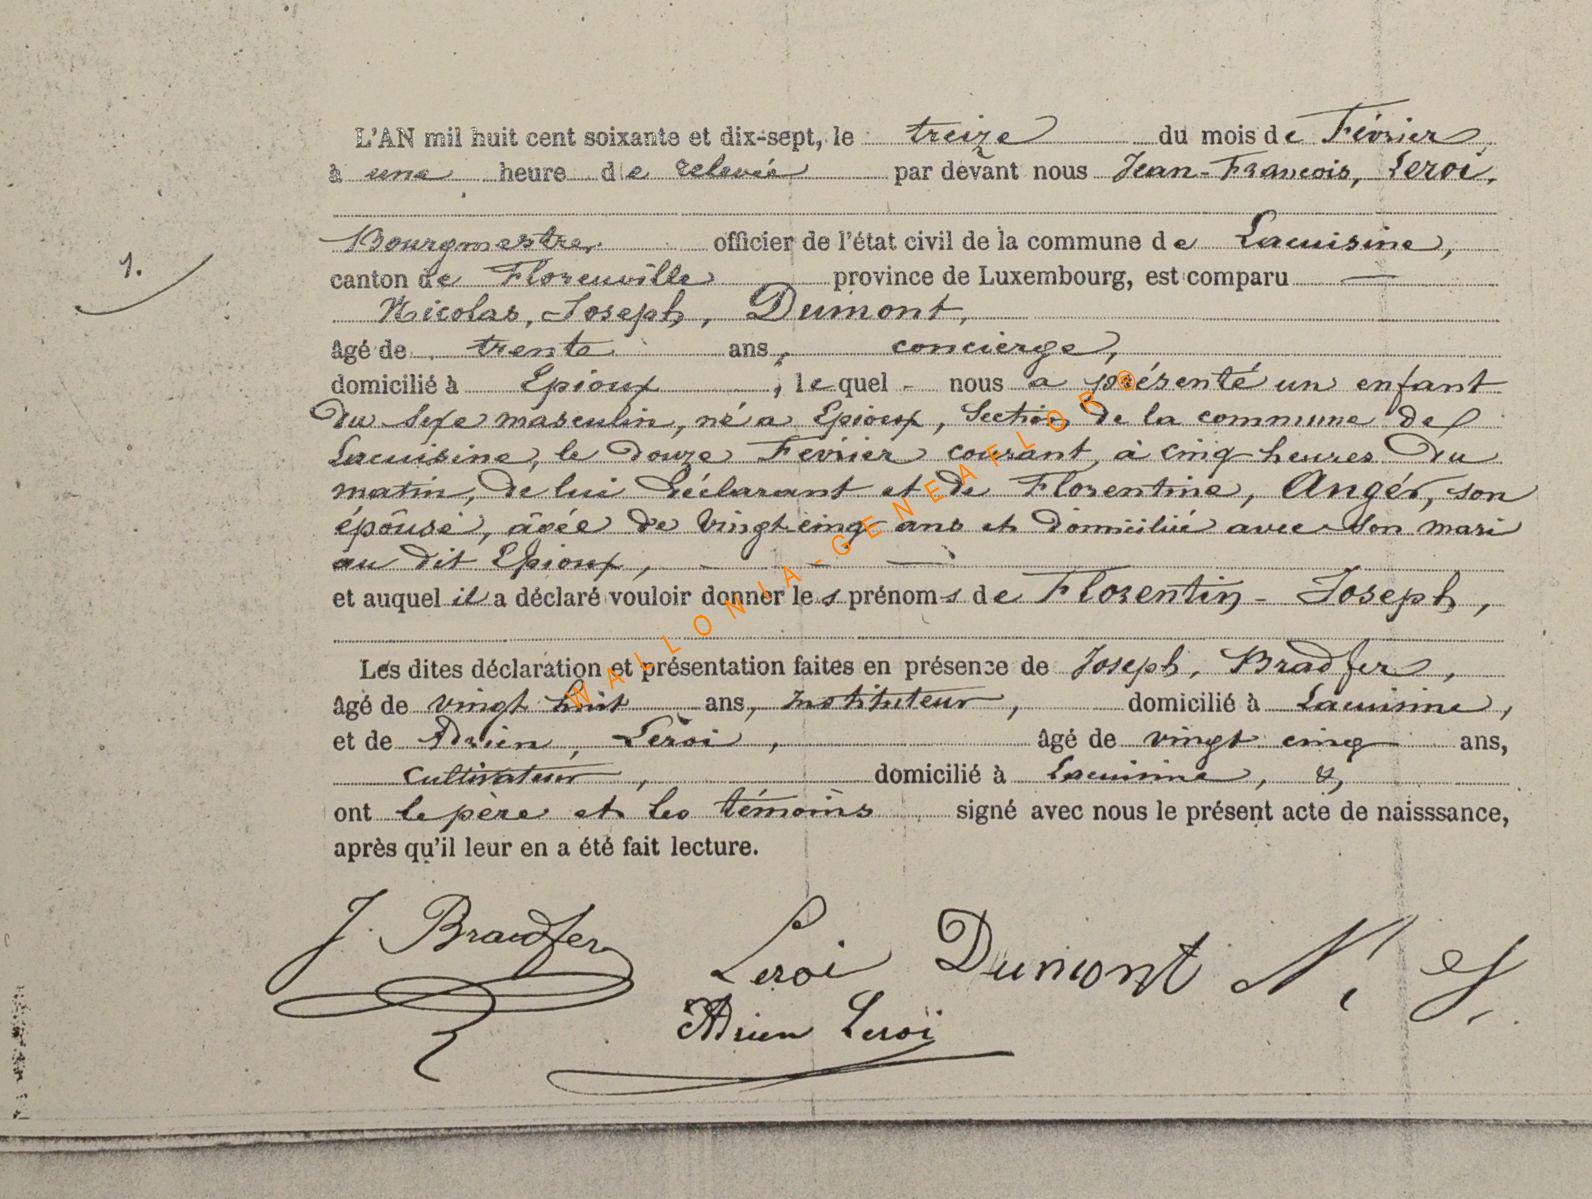 L'AN mil huit cent soixante et dix-sept, le treize du mois de Février
à une heure de relevée par devant nous Jean-François, Leroi,
Bourgmestre, officier de l'état civil de la commune de Lacuisine,
1.
canton de Florenville province de Luxembourg, est comparu
Nicolas, Joseph, Dumont,
âgé de trente ans, concierge,
domicilié à Epioux, lequel nous a présenté un enfant
du sexe masculin, né a Epioux, Section de la commune de
Lacuisine, le douze Février courant, à cinq heures du
matin, de lui déclarant et de Florentine, Angér, son
épouse, âgée de vingt cinq ans et domicilié avec son mari
au dit Epioux,
et auquel il a déclaré vouloir donner les prénoms de Florentin-Joseph,
Les dites déclaration et présentation faites en présence de Joseph, Bradfer,
âgé de vingt huit ans, Instituteur, domicilié à Lacuisine,
et de Adrien, Leroi, âgé de vingt cinq ans,
cultivateur, domicilié à Lacuisine, &,
ont le père et les témoins signé avec nous le présent acte de naisssance,
après qu'il leur en a été fait lecture.
J. Bradfer Leroi Dumont N. J.
Adrien Leroï
WALLONIA-GENEAFLOR®